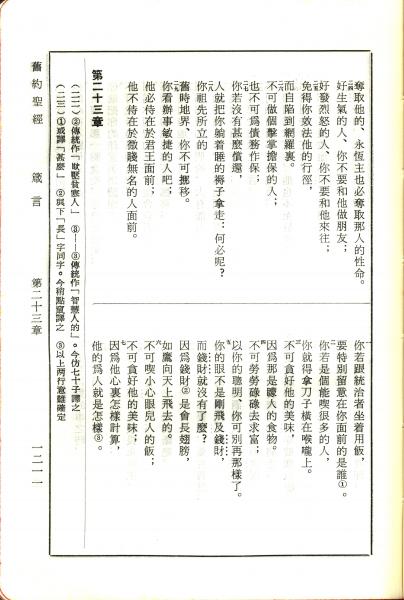 奪取他的、永恆主也必奪取那人的性命。
好生氣的人、你不要和他做朋友；
好發烈怒的人、你不要和他來往；
免得你效法他的行徑，
而自陷到網羅裏。
不可做個擊掌擔保的人；
也不可爲債務作保；
你若沒有甚麼償還，
人就把你躺着睡的褥子拿走：何必呢？
舊時地界、你不可挪移。
你祖先所立的
你看辦事敏捷的人吧；
他必侍立於君王面前；
他不侍在於微賤無名的人面前。
第二十三章
一 你若跟統治者坐着用飯，
要特別留意在你面前的是誰①。
二 你若是個能喫很多的人，
你就得拿刀子橫在喉嚨上。
三 不可貪好他的美味，
因爲那是騙人的食物。
四 不可勞勞碌碌去求富；
以你的聰明、你可別再那樣了。
五 你的眼不是剛飛及錢財，
而錢財就沒有了麼？
因爲錢財②是會長翅膀，
如鷹向天上飛去的。
六 不可喫小心眼兒人的飯；
不可貪好他的美味；
七 因爲他心裏怎樣計算，
他的爲人就是怎樣③。
(二三)①或譯「甚麼」 ②與下「長」字同字。今稍點竄譯之 ③以上兩行意難確定
舊約聖經 箴言 第二十三章 一二一一